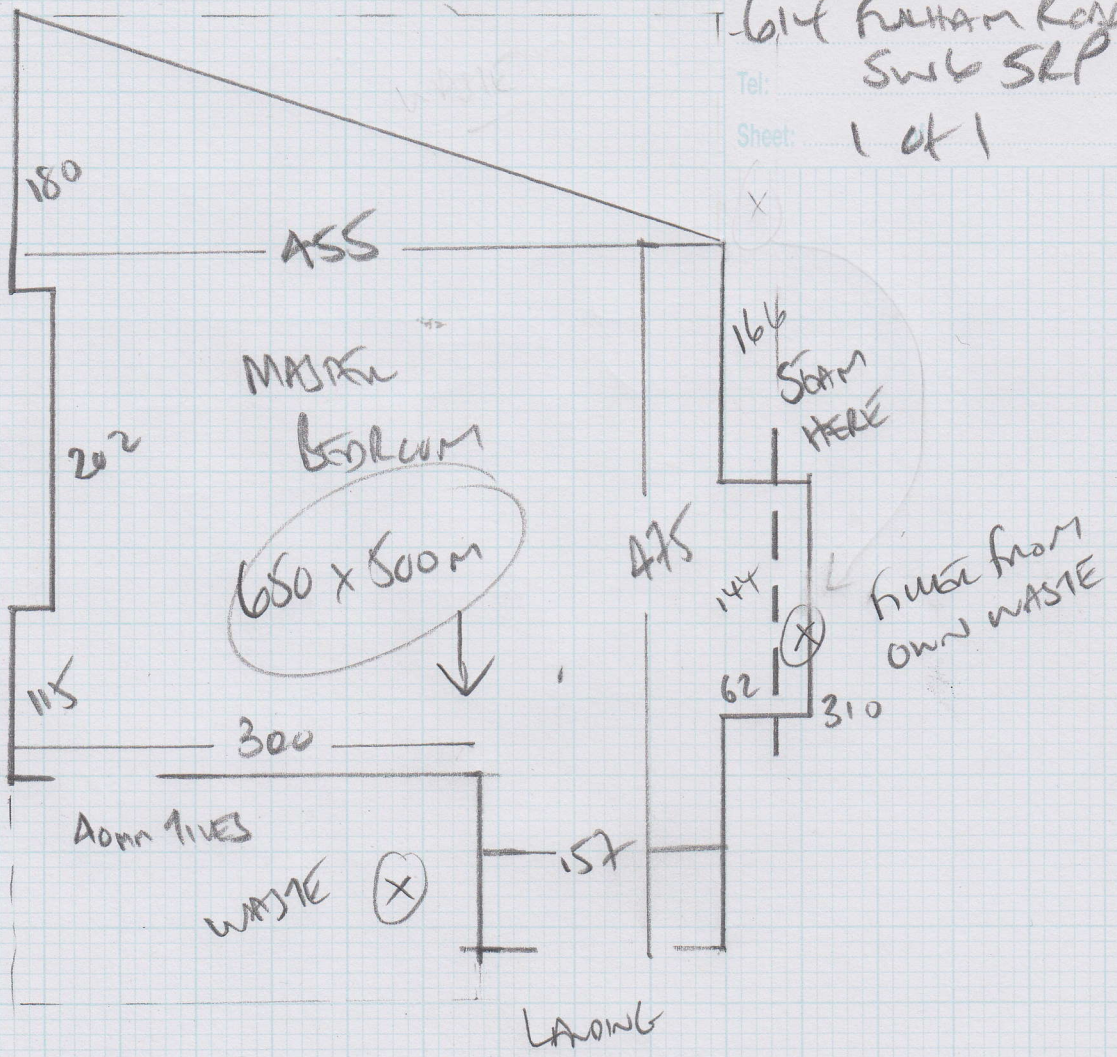 614 FULHAM ROAD
Tel: SW6 5RP
Sheet: 1 of 1
180
455
166
SEAM
HERE
MASTER
BEDROOM
202
650 x 500m
475
144
FILLER FROM
OWN WASTE
X
62
310
115
300
40mm TILES
WASTE X
157
LANDING